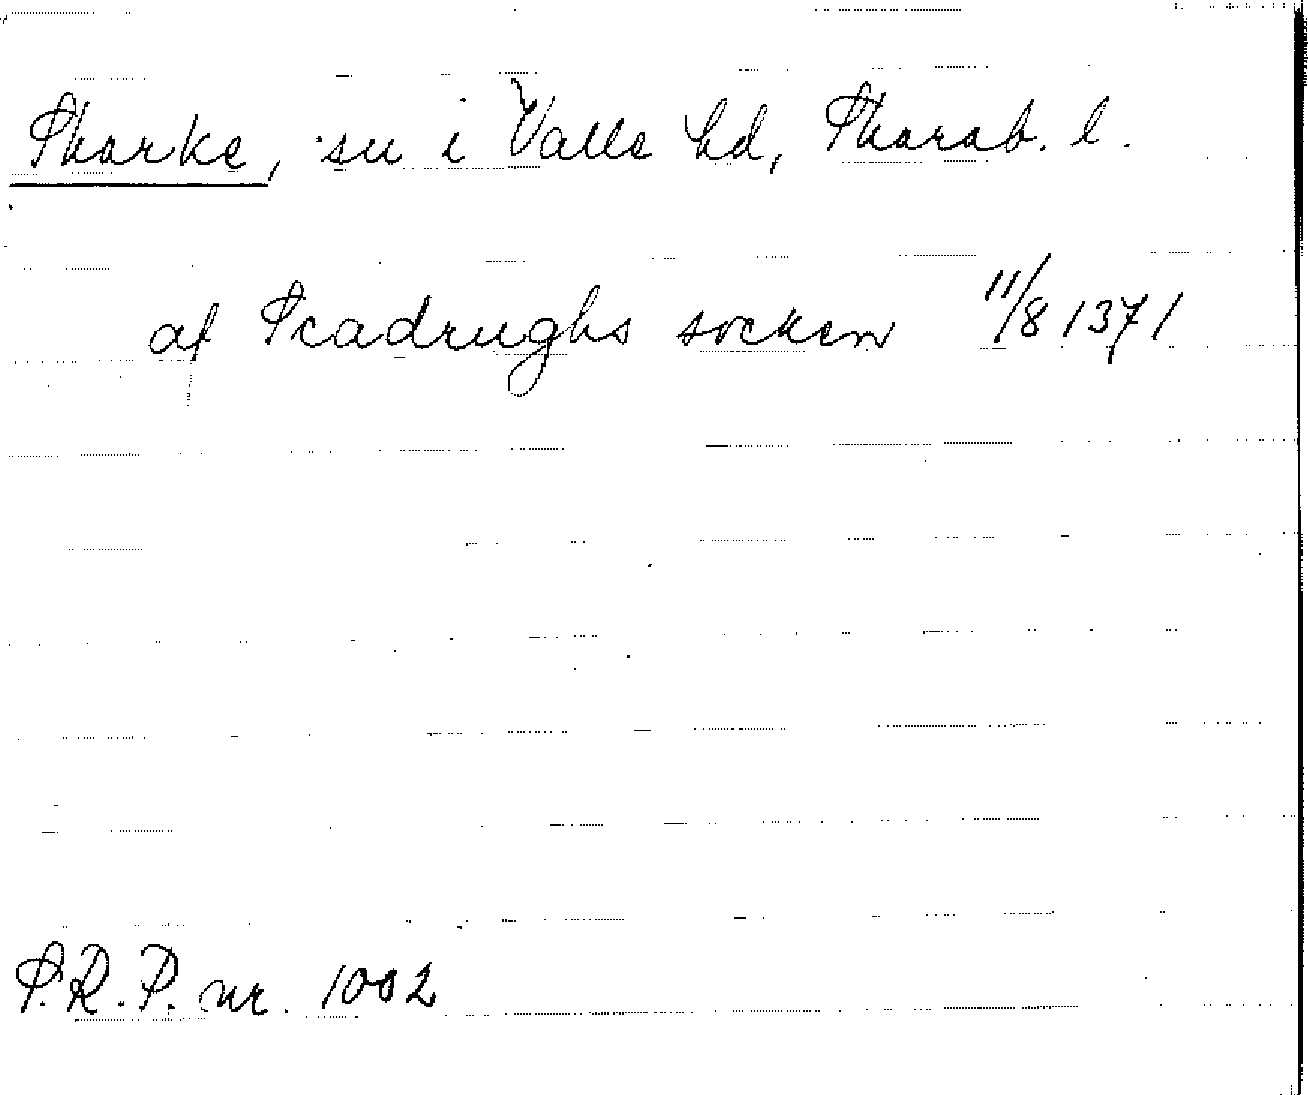 Skarke, sn i Valle hd, Skarab. l.
af Scadrughs socken 11/8 1371
S.R.P. nr. 1002